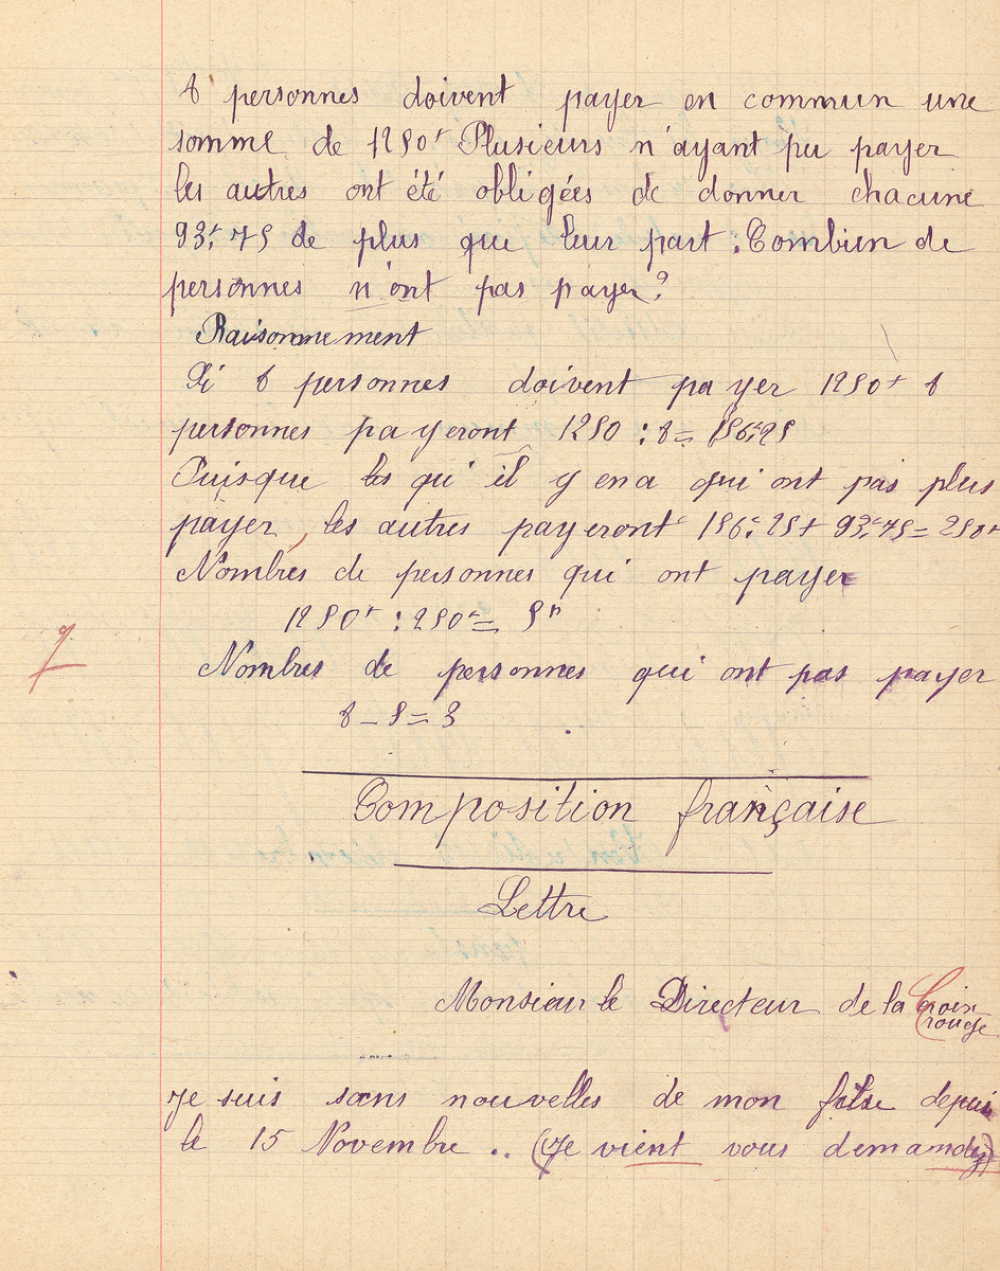 8 personnes doivent payer en commun une
somme de 1250f Plusieurs n'ayant pu payer
les autres ont été obligées de donner chacune
93f,75 de plus que leur part : Combien de
personnes n'ont pas payer?
Raisonnement
Si 8 personnes doivent payer 1250f 8
personnes payeront 1250 : 8 = 156f,25
Puisque qu'il y en a qui ont pas plus
payer, les autres payeront 156f,25 + 93f,75 = 250f
Nombres de personnes qui ont payer
1250f : 250f = 5p
Nombres de personnes qui ont pas payer
8 - 5 = 3
Composition française
Lettre
Monsieur le Directeur de la Croix
rouge
Je suis sans nouvelles de mon depuis
le 15 Novembre .. (Je vient vous demander)